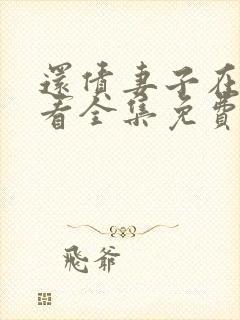 還債妻子在
看全集免費
飛爺